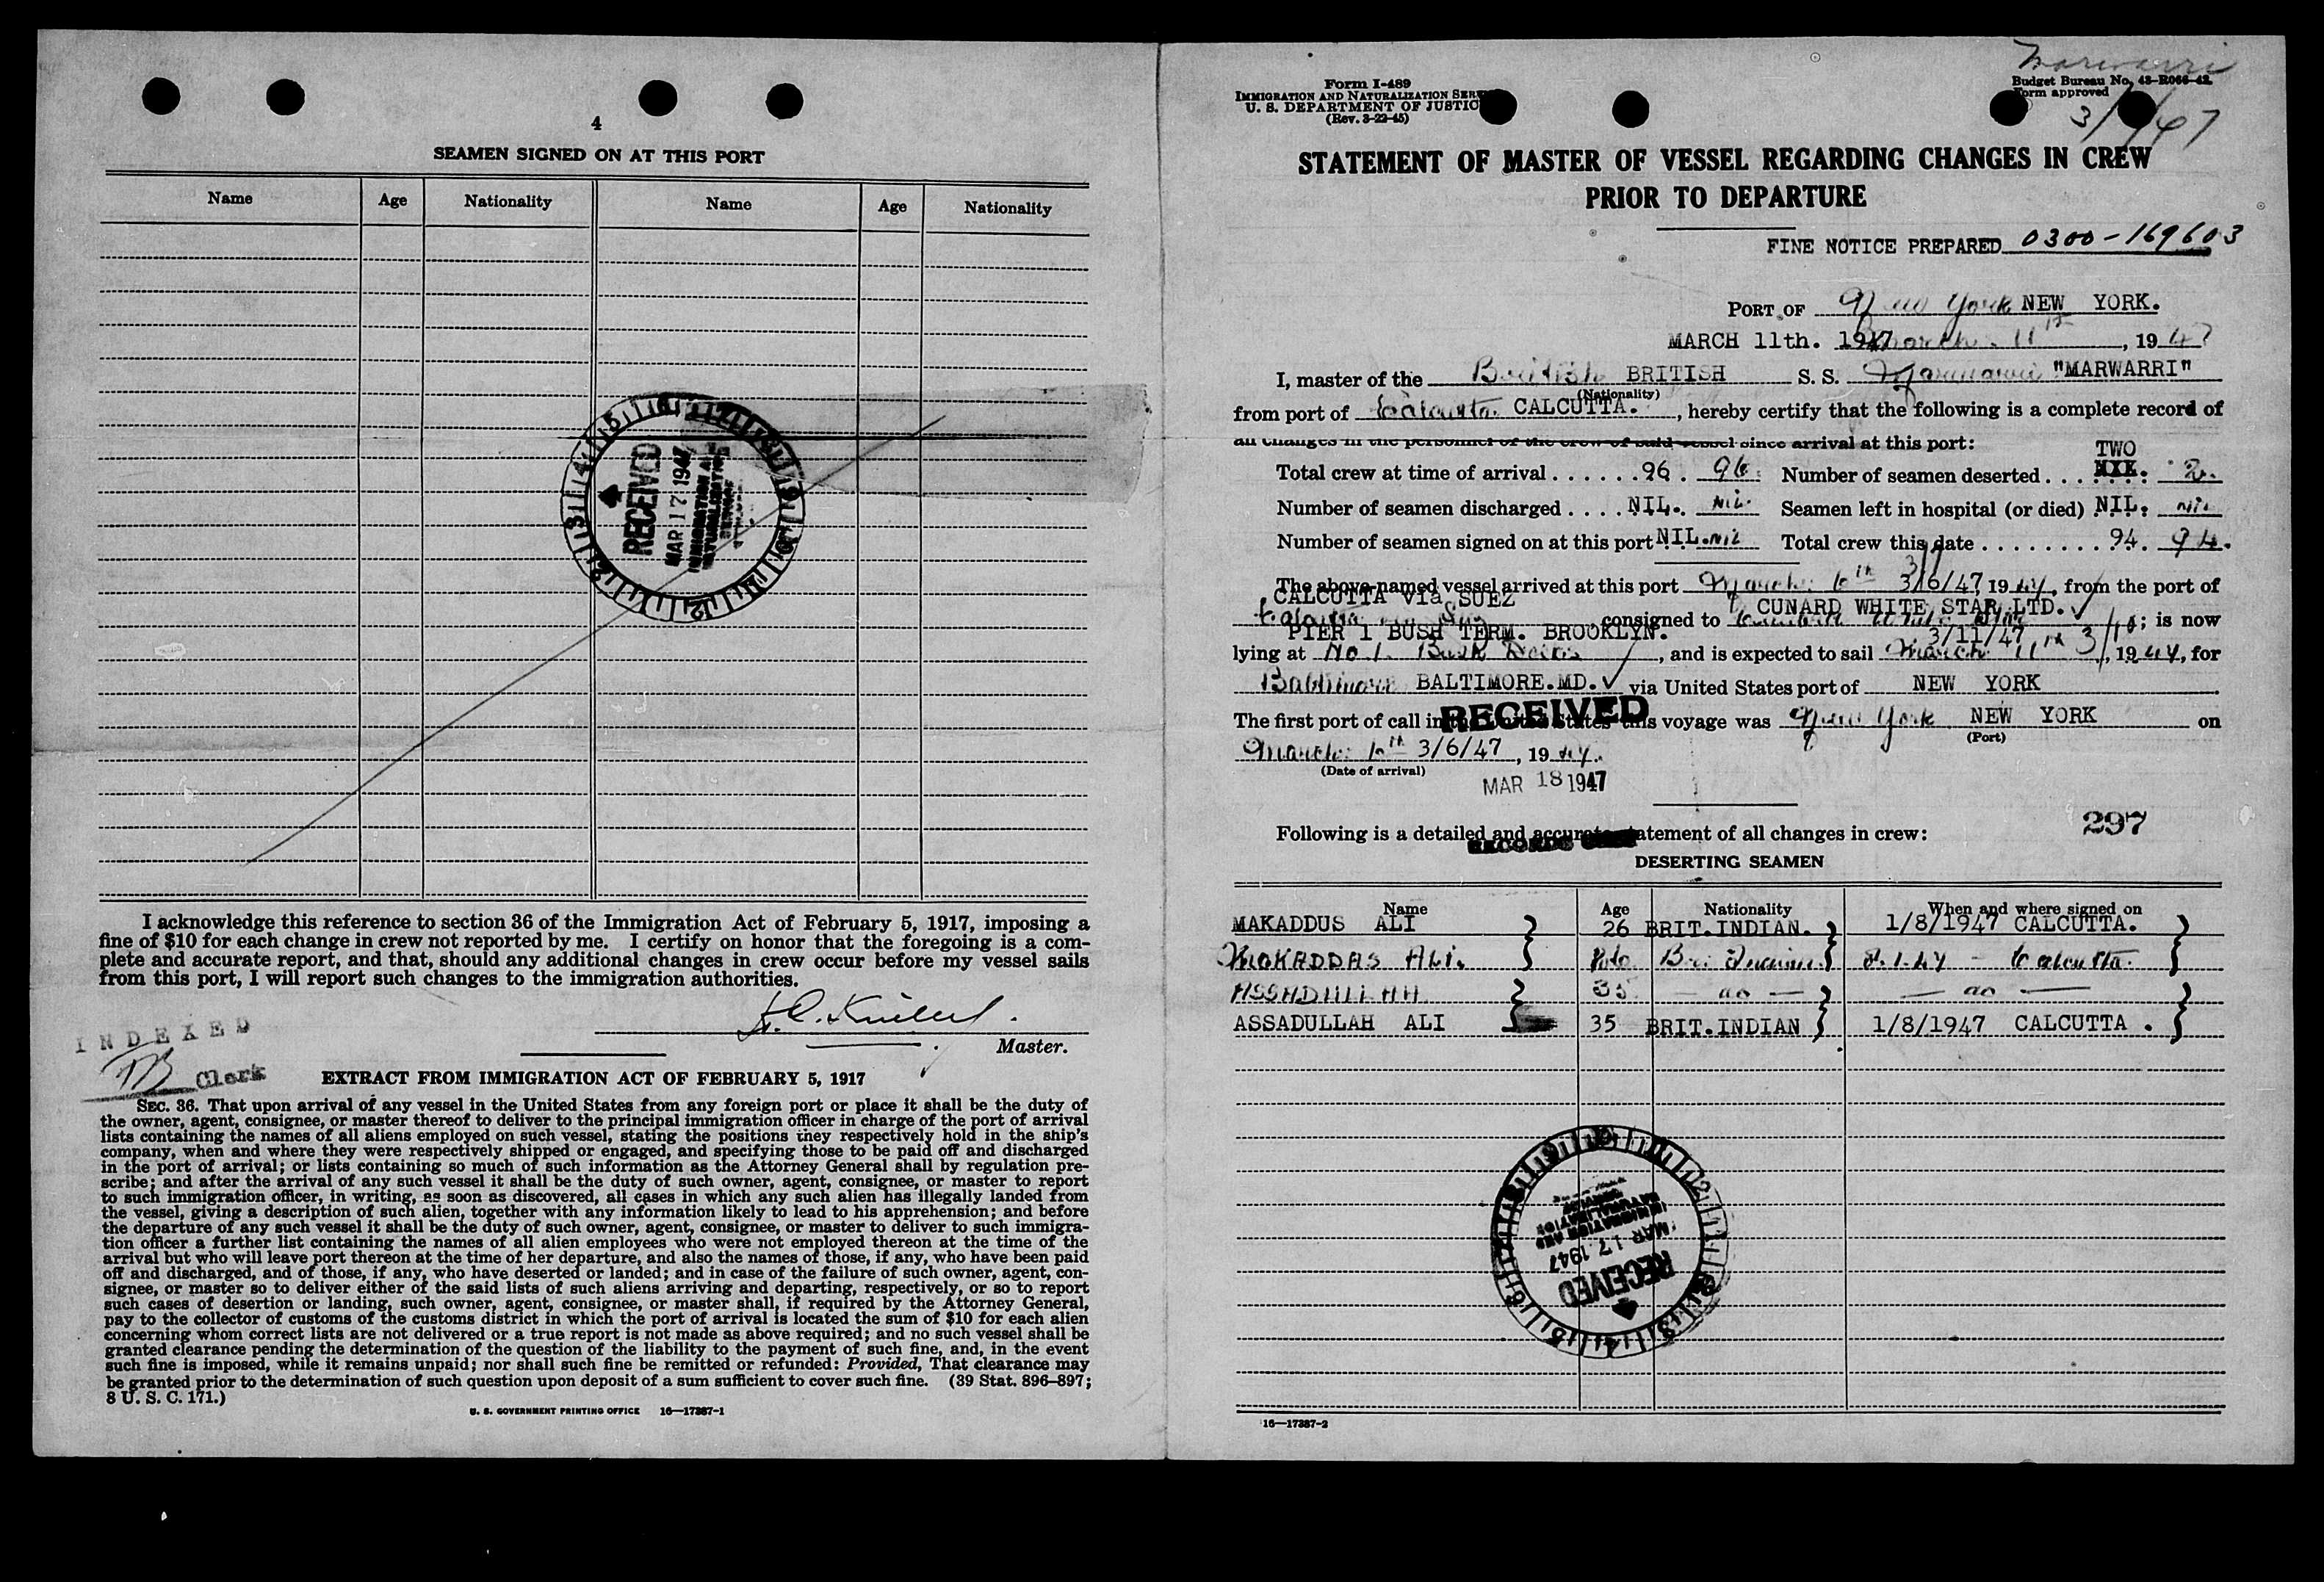 4
SEAMEN SIGNED ON AT THIS PORT
Name Age Nationality Name Age Nationality
RECEIVED
MAR 17 1947
IMMIGRATION AND
NATURALIZATION
SERVICE
I acknowledge this reference to section 36 of the Immigration Act of February 5, 1917, imposing a
fine of $10 for each change in crew not reported by me. I certify on honor that the foregoing is a com-
plete and accurate report, and that, should any additional changes in crew occur before my vessel sails
from this port, I will report such changes to the immigration authorities.
Master.
INDEXED
Clerk
EXTRACT FROM IMMIGRATION ACT OF FEBRUARY 5, 1917
SEC. 36. That upon arrival of any vessel in the United States from any foreign port or place it shall be the duty of
the owner, agent, consignee, or master thereof to deliver to the principal immigration officer in charge of the port of arrival
lists containing the names of all aliens employed on such vessel, stating the positions they respectively hold in the ship's
company, when and where they were respectively shipped or engaged, and specifying those to be paid off and discharged
in the port of arrival; or lists containing so much of such information as the Attorney General shall by regulation pre-
scribe; and after the arrival of any such vessel it shall be the duty of such owner, agent, consignee, or master to report
to such immigration officer, in writing, as soon as discovered, all cases in which any such alien has illegally landed from
the vessel, giving a description of such alien, together with any information likely to lead to his apprehension; and before
the departure of any such vessel it shall be the duty of such owner, agent, consignee, or master to deliver to such immigra-
tion officer a further list containing the names of all alien employees who were not employed thereon at the time of the
arrival but who will leave port thereon at the time of her departure, and also the names of those, if any, who have been paid
off and discharged, and of those, if any, who have deserted or landed; and in case of the failure of such owner, agent, con-
signee, or master so to deliver either of the said lists of such aliens arriving and departing, respectively, or so to report
such cases of desertion or landing, such owner, agent, consignee, or master shall, if required by the Attorney General,
pay to the collector of customs of the customs district in which the port of arrival is located the sum of $10 for each alien
concerning whom correct lists are not delivered or a true report is not made as above required; and no such vessel shall be
granted clearance pending the determination of the question of the liability to the payment of such fine, and, in the event
such fine is imposed, while it remains unpaid; nor shall such fine be remitted or refunded: Provided, That clearance may
be granted prior to the determination of such question upon deposit of a sum sufficient to cover such fine. (39 Stat. 896–897;
8 U. S. C. 171.)
U. S. GOVERNMENT PRINTING OFFICE 16—17387-1
Marwarri
Form I-489
IMMIGRATION AND NATURALIZATION SER
U. S. DEPARTMENT OF JUSTIC
(Rev. 3-22-45)
Budget Bureau No. 43-R066-42.
Form approved
STATEMENT OF MASTER OF VESSEL REGARDING CHANGES IN CREW
PRIOR TO DEPARTURE
FINE NOTICE PREPARED 0300-169603
PORT OF New York NEW YORK.
MARCH 11th. 1947 March 11th, 1947
I, master of the British BRITISH S. S. Marwarri "MARWARRI"
(Nationality)
from port of Calcutta CALCUTTA., hereby certify that the following is a complete record of
all changes in the personnel of the crew of said vessel since arrival at this port:
TWO
Total crew at time of arrival . . . . . . 96 . 96. Number of seamen deserted . . . NIL. 2.
Number of seamen discharged . . . . NIL. Nil Seamen left in hospital (or died) NIL. Nil
Number of seamen signed on at this port NIL. Nil Total crew this date . . . . . . . . 94. 94.
The above-named vessel arrived at this port March 6th 3/6/47 1947, from the port of
CALCUTTA via SUEZ CUNARD WHITE STAR LTD.
Calcutta via Suez, consigned to Cunard White Star; is now
PIER 1 BUSH TERM. BROOKLYN. 3/11/47
lying at No 1. Bush Docks, and is expected to sail March 11th, 1947, for
Baltimore BALTIMORE.MD. via United States port of NEW YORK
RECEIVED
The first port of call in the United States this voyage was New York NEW YORK on
(Port)
March 6th 3/6/47, 1947.
(Date of arrival)
MAR 18 1947
297
Following is a detailed and accurate statement of all changes in crew:
RECORDS
DESERTING SEAMEN
Name Age Nationality When and where signed on
MAKADDUS ALI 26 BRIT.INDIAN. 1/8/1947 CALCUTTA.
MOKADDAS ALI. Bri Indian 8.1.47 - Calcutta.
ASSADULLAH 35 — do — — do —
ASSADULLAH ALI 35 BRIT.INDIAN 1/8/1947 CALCUTTA .
RECEIVED
MAR 17 1947
IMMIGRATION AND
NATURALIZATION
SERVICE
16—17387-2